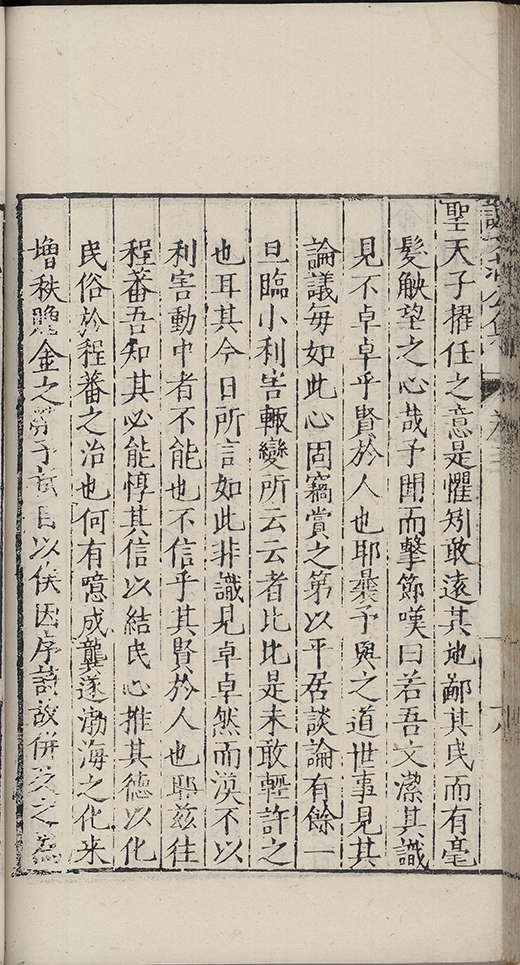 聖天子擢任之意是懼矧敢遠其地鄙其民而有毫
髮觖望之心哉予聞而擊節嘆曰若吾文潔其識
見不卓卓乎賢於人也耶曩予與之道世事見其
論議每如此心固竊賞之第以平居談論有餘一
旦臨小利害輙變所云云者比比是未敢輕許之
也耳其今日所言如此非識見卓卓然而漠不以
利害動中者不能也不信乎其賢於人也耶茲往
程蕃吾知其必能惇其信以結民心推其德以化
民俗於程蕃之治也何有噫成龔遂渤海之化来
増秩賜金之予目以俟因序詩故併及之為